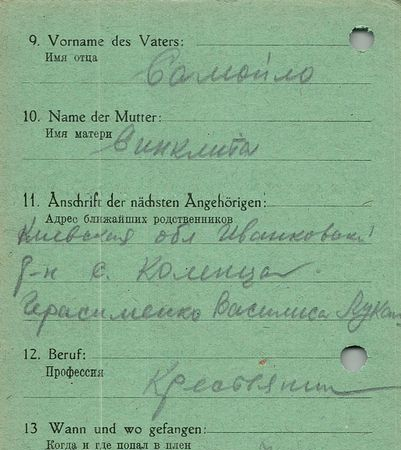 9. Vorname des Vaters:
Имя отца
Самойло
10. Name der Mutter:
Имя матери
Винклита
11. Anschrift der nächsten Angehörigen:
Адрес ближайших родственников
Киевская обл Иванковский
р-н с. Коленцы
Герасименко Василиса
12. Beruf:
Профессия
Крестьянин
13 Wann und wo gefangen:
Когда и где попал в плен